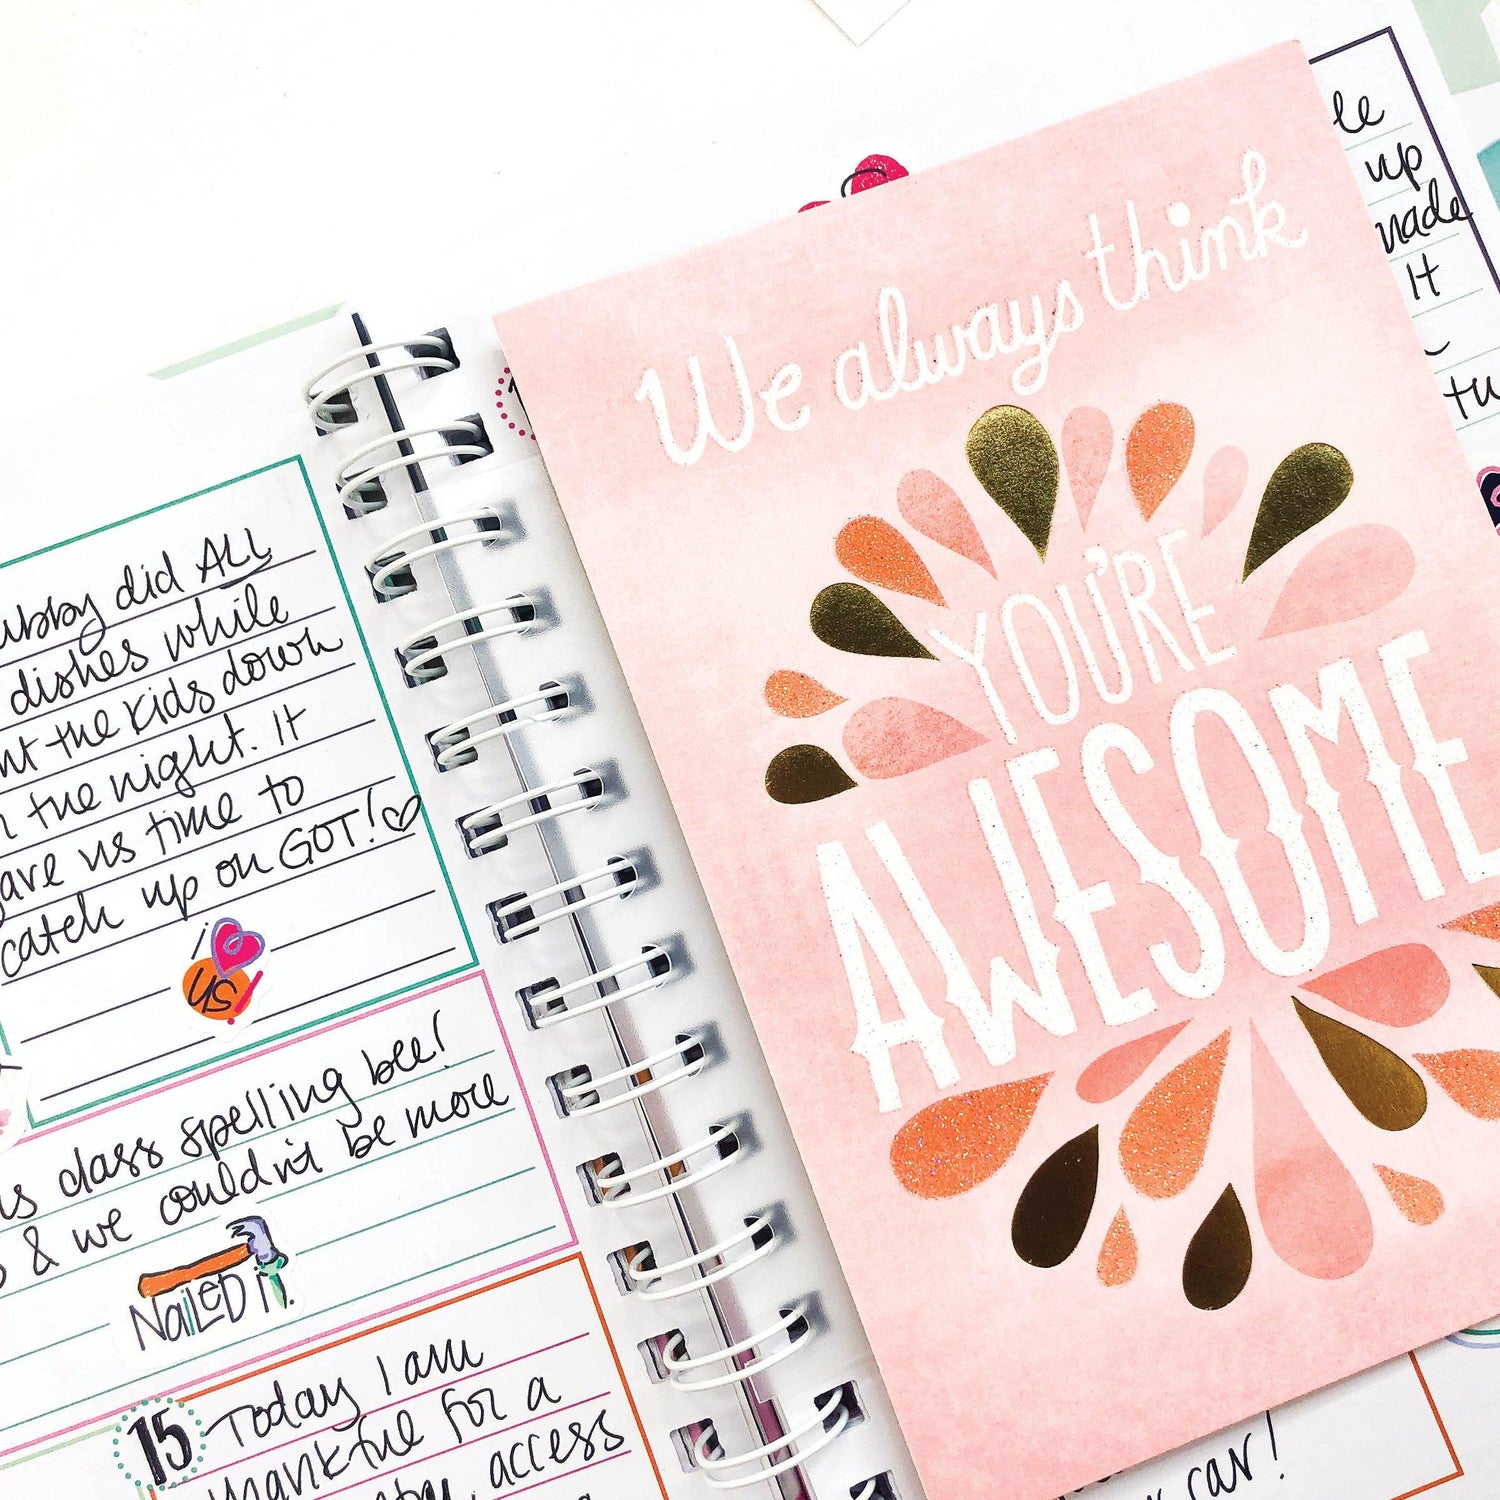 did ALL
dishes while
the kids down
the night. It
us time to
catch up on GOT!
i
us!
class spelling bee!
& we couldn't be more
NaiLED it.
15
Today I am
thankful for a
access
We always think
YOU'RE
AWESOME
up
It
car!